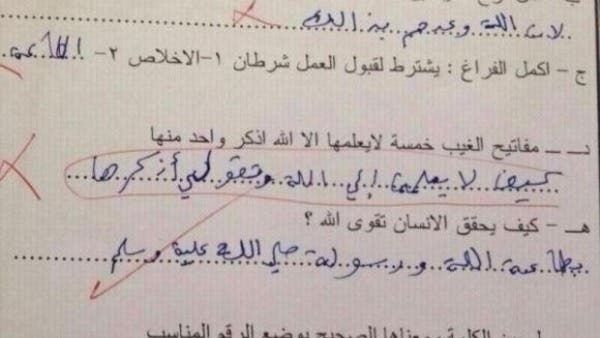 لان الله وعدهم بذ الك
ج - اكمل الفراغ : يشترط لقبول العمل شرطان ١-الاخلاص ٢- الطاعه
د - مفاتيح الغيب خمسة لايعلمها الا الله اذكر واحد منها
كيف لا يعلمها إلى اللة وتقو لي أذكرها
هـ - كيف يحقق الانسان تقوى الله ؟
بطاعة اللة ورسولة صلى اللة علية وسلم
الصحيح بوضع الرقم المناسب